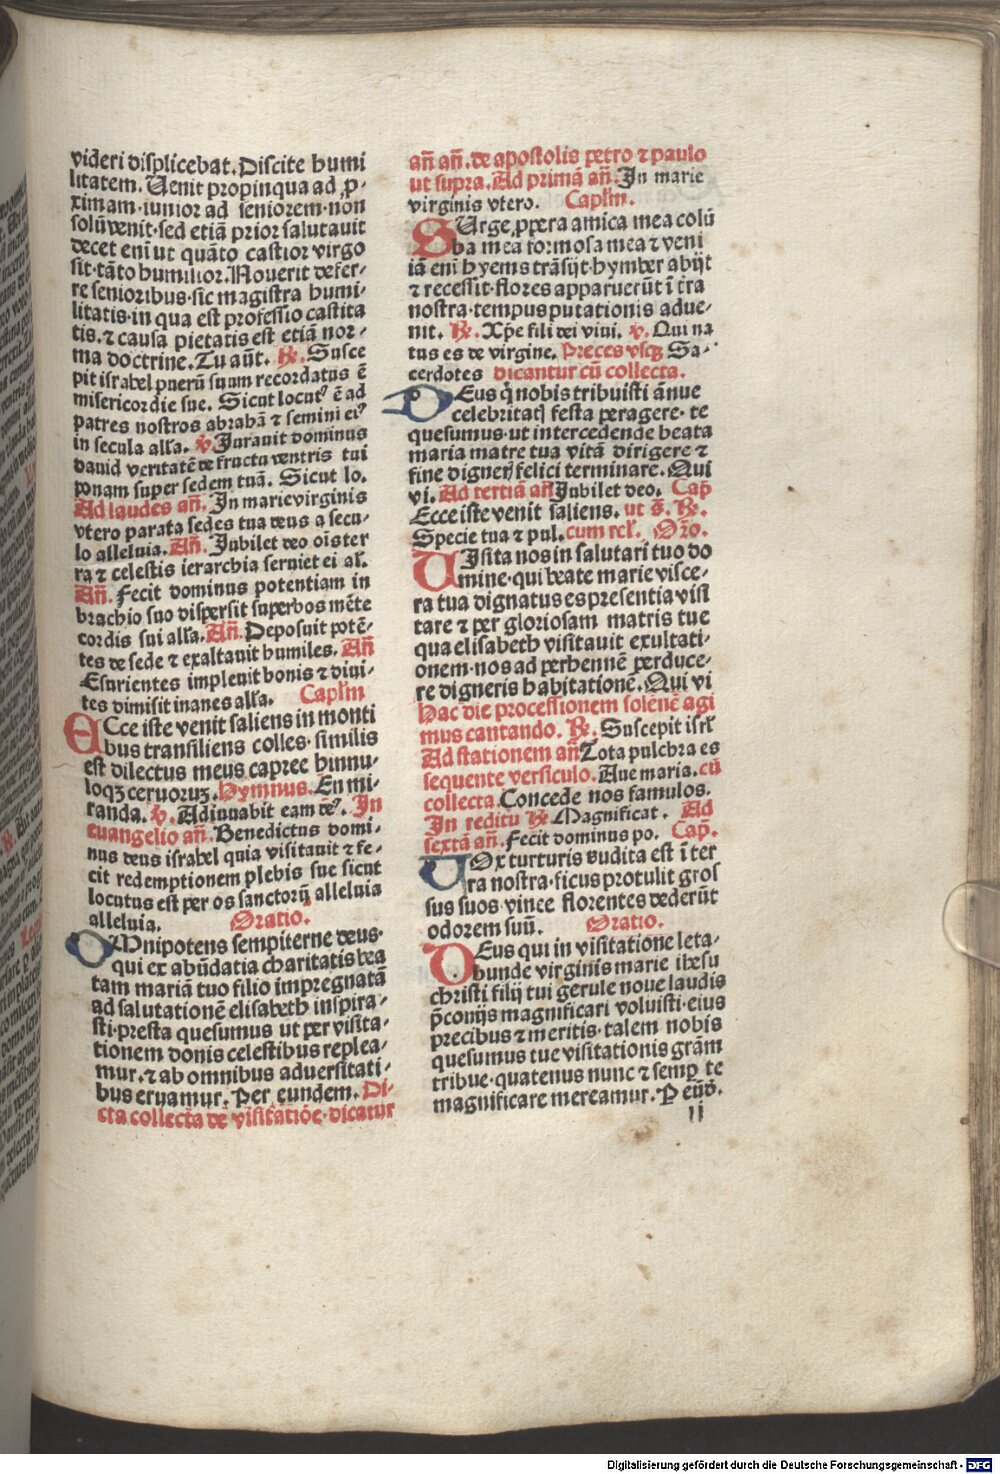 videri displicebat. Discite humi
litatem. Uenit propinqua ad ꝓ-
ximam·iunior ad seniorem·non
solū venit·sed etiā prior salutauit
decet enī ut quāto castior virgo
sit·tāto humilior. Nouerit defer-
re senioribus·sic magistra humi-
litatis·in qua est professio castita
tis. ⁊ causa pietatis est etiā nor-
ma doctrine. Tu aūt. ℟. Susce
pit israhel puerū suum recordatus ē
misericordie sue. Sicut locutꝰ ē ad
patres nostros abrahā ⁊ semini eiꝰ
in secula alľa. ℣. Iurauit dominus
dauid veritatē de fructu ventris tui
ponam super sedem tuā. Sicut lo.
Ad laudes an̄. In marie virginis
vtero parata sedes tua deus a secu-
lo alleluia. An̄. Jubilet deo ois ter
ra ⁊ celestis ierarchia seruiet ei al̄.
An̄. Fecit dominus potentiam in
brachio suo dispersit superbos mēte
cordis sui alľa. An̄. Deposuit potē-
tes de sede ⁊ exaltauit humiles. An̄
Esurientes impleuit bonis ⁊ diui-
tes dimisit inanes alľa. Caplm̄
ECce iste venit saliens in monti
bus transiliens colles·similis
est dilectus meus capree hinnu-
loqꝫ ceruoruꝫ. Hymnus. En mi-
randa. ℣. Adiuuabit eam dēꝰ. In
euangelio an̄. Benedictus domi-
nus deus israhel quia visitauit ⁊ fe-
cit redemptionem plebis sue sicut
locutus est per os sanctorū alleluia
alleluia. Oratio.
OMnipotens sempiterne deus·
qui ex abūdatia charitatis bea
tam mariā tuo filio impregnatā
ad salutationē elisabeth inspira-
sti·presta quesumus ut per visita-
tionem donis celestibus replea-
mur·⁊ ab omnibus aduersitati-
bus eruamur. Per eundem. Di-
cta collecta de visitatiōe·dicatur
an̄ an̄. de apostolis petro ⁊ paulo
ut supra. Ad primā an̄. In marie
virginis vtero. Caplm̄.
SUrge ꝓpera amica mea colū
ba mea formosa mea ⁊ veni
iā enī hyems trāsijt·hymber abijt
⁊ recessit·flores apparuerūt ī tra
nostra·tempus putationis adue-
nit. ℟. Xp̄e fili dei viui. ℣. Qui na
tus es de virgine. Preces vsqꝫ Sa-
cerdotes dicantur cū collecta.
DEus q̄ nobis tribuisti ānue
celebritatꝭ festa peragere·te
quesumus·ut intercedende beata
maria matre tua vitā dirigere ⁊
fine dignerꝭ felici terminare. Qui
vi. Ad tertiā an̄ Jubilet deo. Cap̄
Ecce iste venit saliens. ut s̄. ℟.
Specie tua ⁊ pul. cum rel̄. Oro.
UIsita nos in salutari tuo do
mine·qui beate marie visce-
ra tua dignatus es presentia visi
tare ⁊ per gloriosam matris tue
qua elisabeth visitauit exultati-
onem·nos ad perhennē perduce-
re digneris habitationē. Qui vi
Hac die processionem solēnē agi
mus cantando. ℟. Suscepit isrl̄
Ad stationem an̄ Tota pulchra es
sequente versiculo. Aue maria. cū
collecta Concede nos famulos.
In reditu ℟. Magnificat. Ad
sextā an̄. Fecit dominus po. Cap̄.
UOx turturis audita est ī ter
ra nostra·ficus protulit gros
sus suos·vinee florentes dederūt
odorem suū. Oratio.
DEus qui in visitatione leta-
bunde virginis marie ihesu
christi filij tui gerule noue laudis
p̄conijs magnificari voluisti·eius
precibus ⁊ meritis·talem nobis
quesumus tue visitationis grām
tribue·quatenus nunc ⁊ semꝑ te
magnificare mereamur. P eūd.
ll
Digitalisierung gefördert durch die Deutsche Forschungsgemeinschaft - DFG